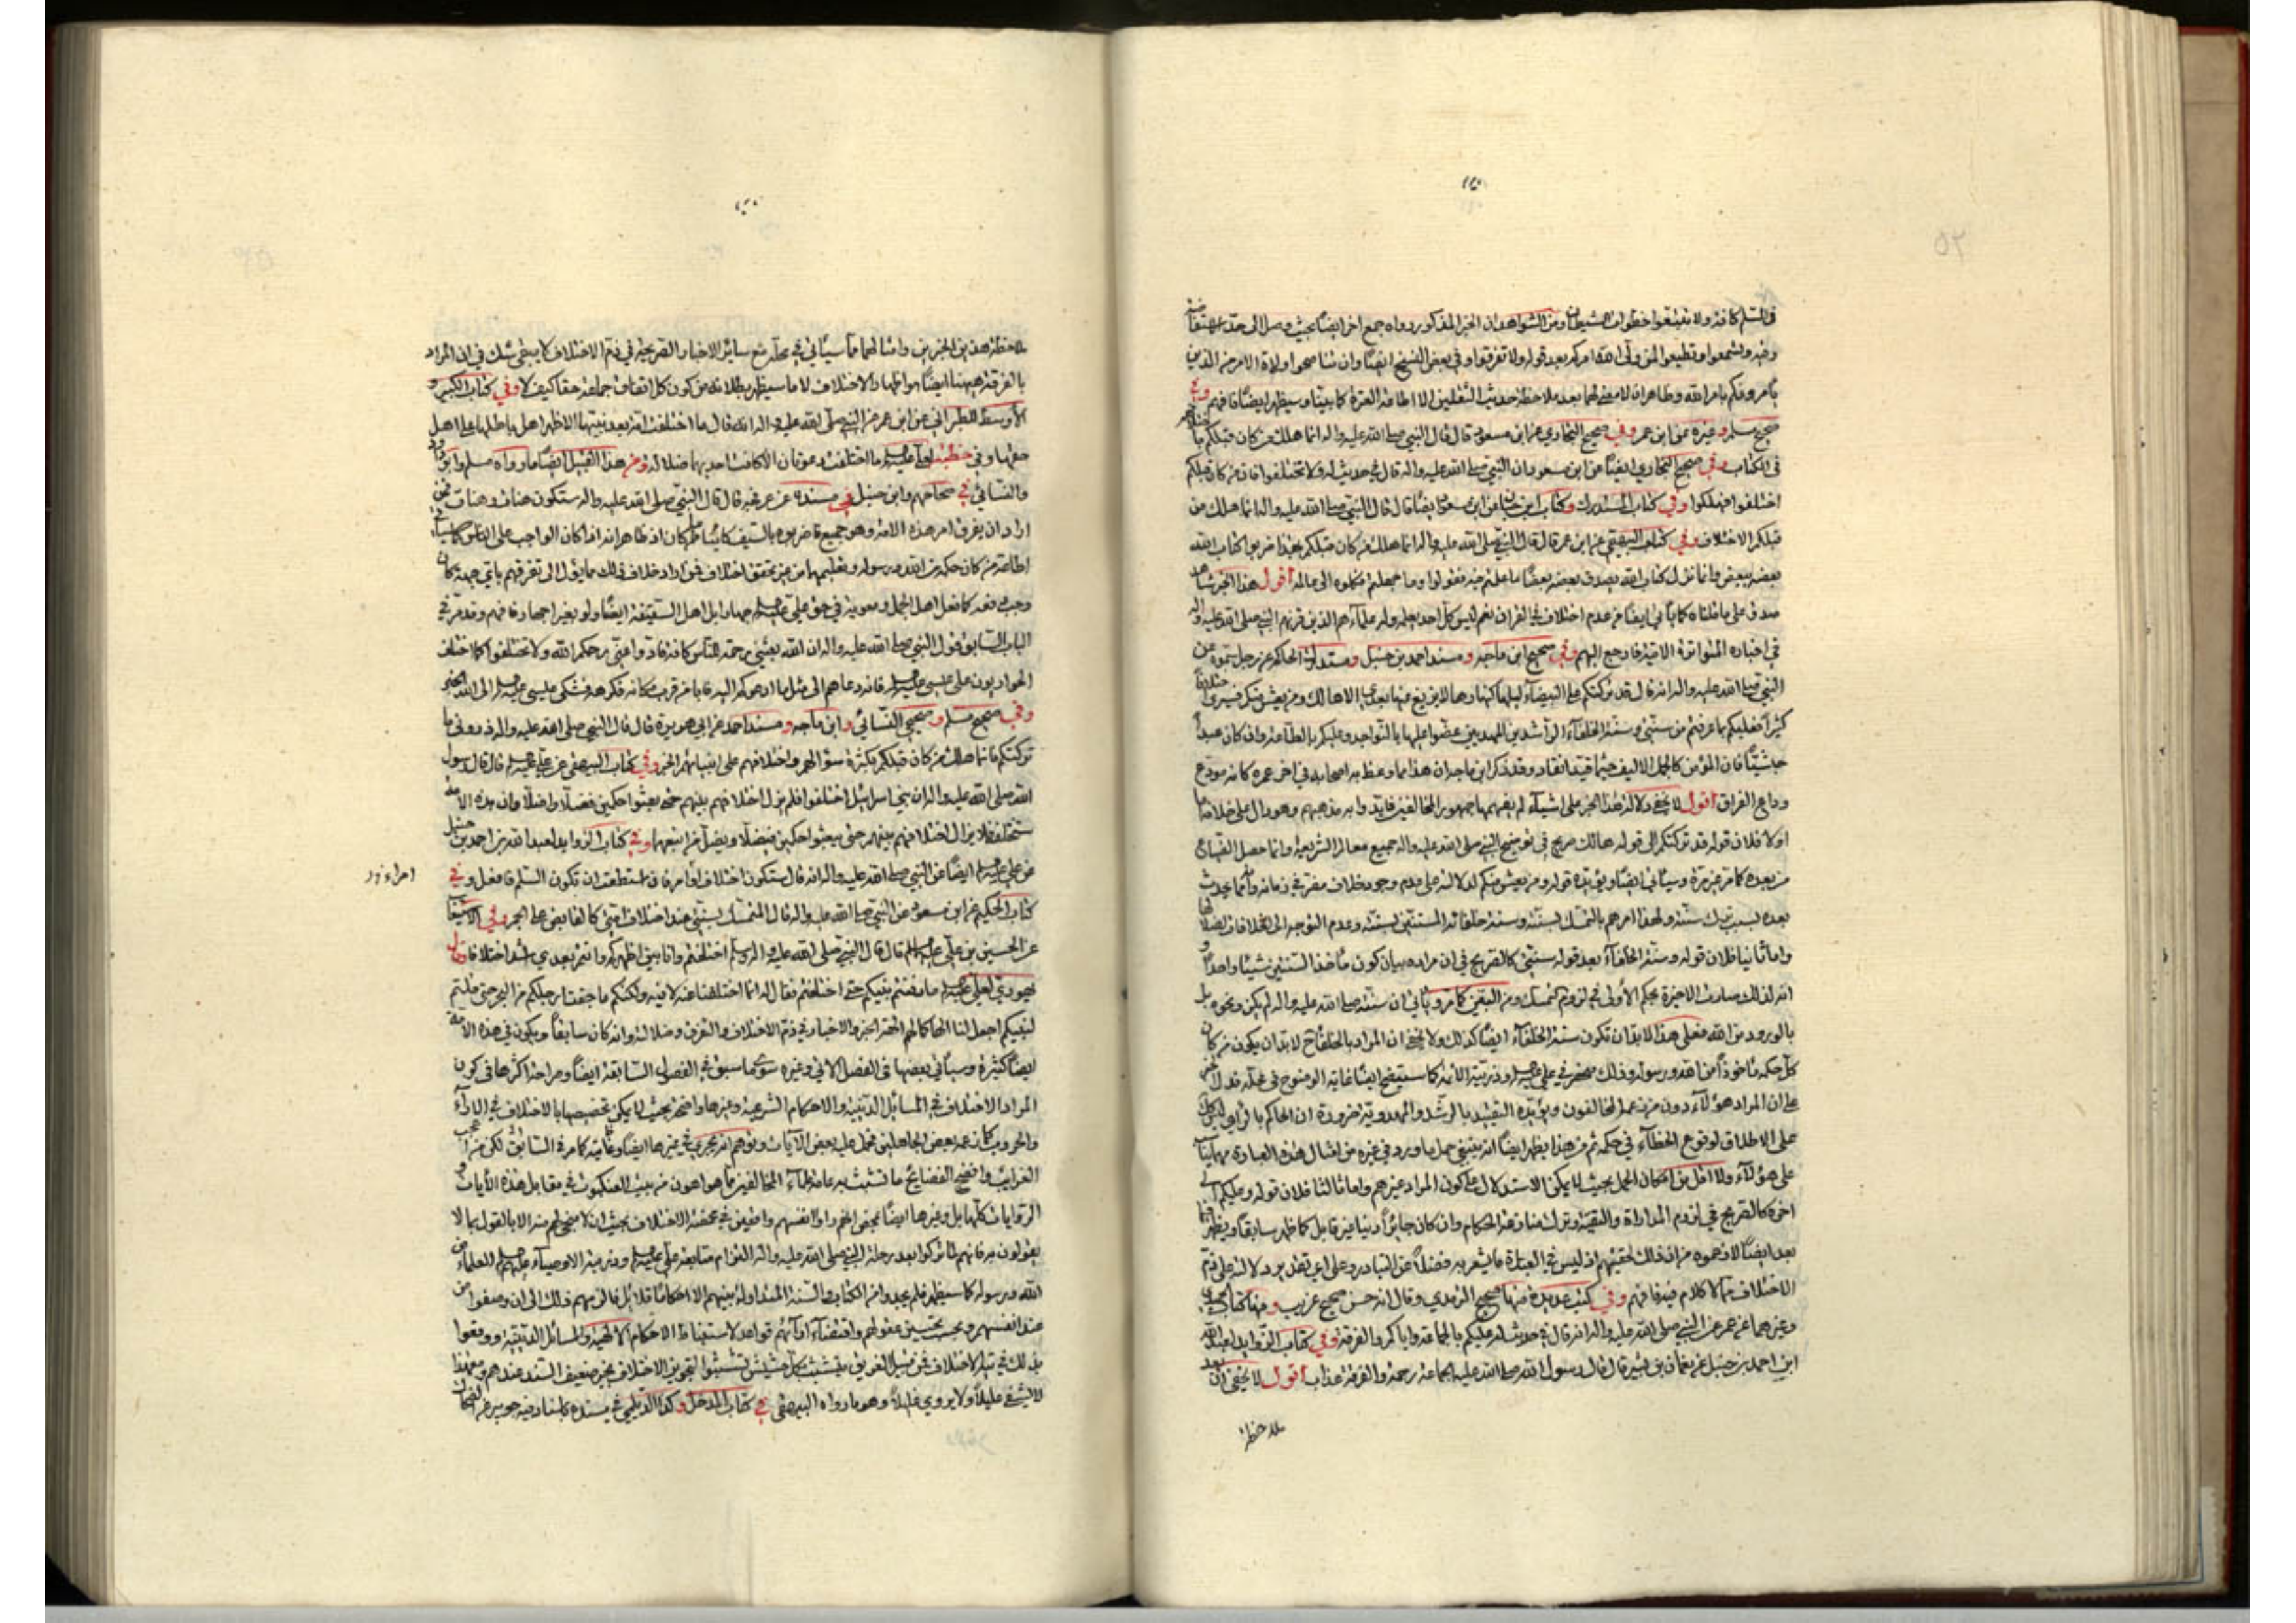 في السلم كافة ولا تتبعوا خطوات الشيطان ومن الشواهد ان الخبر المذكور رواه جمع اخر ايضا بحيث وصل الى حد الاستفاضة
وفيه وتسمعوا وتطيعوا لمن ولى الله امركم بعد قوله ولا تفرقوا وفي بعض النسخ ايضا وان تناصحوا ولاة الامر من الذين
يأمرونكم بامر الله وظاهر ان لا معنى لهما بعد ملاحظة حديث الثقلين الا اطاعة العترة كما بينا وسيظهر ايضا فافهم وفي
صحيح مسلم وغيره عن ابن عمر وفي صحيح البخاري عن ابن مسعود قال قال النبي صلى الله عليه واله انما هلك من كان قبلكم باختلافهم
في الكتاب وفي صحيح البخاري ايضا عن ابن مسعود ان النبي صلى الله عليه واله قال في حديث له ولا تختلفوا فان من كان قبلكم
اختلفوا فهلكوا وفي كتاب المستدرك وكتاب ابن حبان عن ابن مسعود ايضا قال قال النبي صلى الله عليه واله انما هلك من
قبلكم الاختلاف وفي كتاب البيهقي عن ابن عمر قال قال النبي صلى الله عليه واله انما هلك من كان قبلكم بهذا ضربوا كتاب الله
بعضه ببعض وانما نزل كتاب الله يصدق بعضه بعضا ما علمتم منه فقولوا وما جهلتم فكلوه الى عالمه اقول هذا الخبر شاهد
صدق على ما قلناه كما يأتي ايضا من عدم اختلاف في القران نعم ليس كل احد يعلمه وله علماء هم الذين قرنهم النبي صلى الله عليه واله
في اخباره المتواترة الاتية فارجع اليهم وفي صحيح ابن ماجه ومسند احمد بن حنبل ومستدرك الحاكم عن رجل سمعه من
النبي صلى الله عليه واله انه قال قد تركتكم على البيضاء ليلها كنهارها لا يزيغ عنها بعدي الا هالك ومن يعش منكم فسيرى اختلافا
كثيرا فعليكم بما عرفتم من سنتي وسنة الخلفاء الراشدين المهديين عضوا عليها بالنواجد وعليكم بالطاعة وان كان عبدا
حبشيا فان المؤمن كالجمل الاليف حيثما قيد انقاد وقد ذكر ابن ماجه ان هذا مما وعظ به اصحابه في اخر عمره كانه مودع
وداع الفراق اقول لا يخفى دلالة هذا الخبر على اشياء لم يفهمها جمهور المخالفين فايدوا به مذهبهم وهو دال على خلافه اما
اولا فلان قوله قد تركتكم الى قوله هالك صريح في توضيح النبي صلى الله عليه واله جميع معالم الشريعة وانما حصل التهالك
من بعده كما مر غير مرة وسيأتي ايضا ويؤيده قوله ومن يعش منكم لدلالته على عدم وجود خلاف مضر في زمانه وانما يحدث
بعده بسبب ترك سنته ولهذا امرهم بالتمسك بسنته وسنة خلفائه المستنين بسنته وعدم التوجه الى الخلافات اصلا
واما ثانيا فلان قوله وسنة الخلفاء بعد قوله سنتي كالصريح في ان مراده بيان كون مأخذ السنتين شيئا واحدا
انه لذلك صارت الاخيرة بحكم الأولى في لزوم التمسك ومن اليقين كما مر ويأتي ان سنته صلى الله عليه واله لم يكن ونحوه بل
بالورود من الله فعلى هذا لابد ان تكون سنة الخلفاء ايضا كذلك ولا يخفى ان المراد بالخلفاء ح لا بد ان يكون من كان
كل حكمه مأخوذا من الله ورسوله وذلك منحصر في علي عليه السلام وذريته الأئمة كما سيتضح ايضا غاية الوضوح في محله فدل الخبر
على ان المراد هؤلاء دون من زعمه المخالفون ويؤيده التقييد بالرشد والمهدوية ضرورة ان الحاكم بالراي ليس كذلك
على الاطلاق لوقوع الخطاء في حكمه ثم من هذا يظهر ايضا انه ينبغي حمل ما ورد في غيره من امثال هذه العبارة
على هؤلاء ولا اقل من امكان الحمل بحيث لا يمكن الاستدلال على كون المراد غيرهم واما ثالثا فلان قوله وعليكم الى
اخره كالصريح في لزوم المداراة والتقية وترك منازعة الحكام وان كان جائرا دنيا غير قابل كما ظهر سابقا ويظهر
بعد ايضا لا ما زعموه من ان ذلك لحقيتهم اذ ليس في العبارة ما يشعر به فضلا عن التبادر وعلى اي تقدير دلالته على ذم
الاختلاف مما لا كلام فيه فافهم وفي كتب عديدة منها صحيح الترمذي وقال انه حسن صحيح غريب ومنها كتاب
وغيرهما عن عمر عن النبي صلى الله عليه واله انه قال في حديث له عليكم بالجماعة واياكم والفرقة وفي كتاب الزوايد لعبد الله
ابن احمد بن حنبل عن نعمان بن بشير قال قال رسول الله صلى الله عليه الجماعة رحمة والفرقة عذاب اقول لا يخفى ان بعد
ملاحظة
ملاحظة هذين الخبرين وامثالهما مما سيأتي في محله مع ساير الاخبار الصريحة في ذم الاختلاف لا يبقى شك في ان المراد
بالفرقة ههنا ايضا هو اظهار الاختلاف لا ما سيظهر بطلانه من كون كل اتفاق جماعة حقا كيف لا وفي كتاب الكبير و
الأوسط للطبراني عن ابن عمر عن النبي صلى الله عليه واله انه قال ما اختلفت امة بعد نبيها الا ظهر اهل باطلها على اهل
حقها وفي خطبة لعلي عليه السلام ما اختلفت دعوتان الا كانت احديهما ضلالة ومن هذا القبيل ايضا ما رواه مسلم وابو داود
والنسائي في صحاحهم وابن حنبل في مسنده عن عرفجة قال قال النبي صلى الله عليه واله ستكون هنات وهنات فمن
اراد ان يفرق امر هذه الامة وهو جميع فاضربوه بالسيف كائنا من كان اذ ظاهر انه اذا كان الواجب على الناس كما سيأتي
اطاعة من كان حكمه من الله ورسوله وتعليمهما من غير تحقق اختلاف فمن اراد خلاف ذلك مما يؤل الى تفرقهم باي جهة كان
وجب دفعه كما فعل اهل الجمل ومعوية في حق علي عليه السلام جهارا بل اهل السقيفة ايضا ولو بغير اجهار فافهم وقد مر في
الباب السابق قول النبي صلى الله عليه واله ان الله بعثني رحمة للناس كافة فادوا عني يرحمكم الله ولا تختلفوا كما اختلف
الحواريون على عيسى عليه السلام فانه دعاهم الى مثل ما ادعوكم اليه فاما من قرب مكانه فكرهه فشكى عيسى عليه السلام الى الله الخبر
وفي صحيح مسلم وصحيحي النسائي وابن ماجه ومسند احمد عن ابي هريرة قال قال النبي صلى الله عليه واله ذروني ما
تركتكم فانما هلك من كان قبلكم بكثرة سؤالهم واختلافهم على انبيائهم الخبر وفي كتاب البيهقي عن علي عليه السلام قال قال رسول
الله صلى الله عليه واله ان بني اسرائيل اختلفوا فلم يزل اختلافهم بينهم حتى بعثوا حكمين فضلا واضلا وان هذه الامة
ستختلف فلا يزال اختلافهم بينهم حتى يبعثوا حكمين فيضلا ويضل من اتبعهما وفي كتاب الزوايد لعبد الله بن احمد بن حنبل
عن علي عليه السلام ايضا عن النبي صلى الله عليه واله انه قال ستكون اختلاف او امر فان استطعت ان تكون السلم فافعل وفي
كتاب الحكيم عن ابن مسعود عن النبي صلى الله عليه واله قال المتمسك بسنتي عند اختلاف امتي كالقابض على الجمر وفي الاستيعاب
عن الحسين بن علي عليه السلام قال قال النبي صلى الله عليه واله وسلم اختلفتم وانا بين اظهركم وانتم بعدي اشد اختلافا وقال
يهودي لعلي عليه السلام ما دفنتم نبيكم حتى اختلفتم فقال له انما اختلفنا عنه لا فيه ولكنكم ما جفت ارجلكم من البحر حتى قلتم
لنبيكم اجعل لنا الها كما لهم الهة الخبر والاخبار في ذم الاختلاف والتفرق وضلالته وانه كان سابقا ويكون في هذه الامة
ايضا كثيرة وسيأتي بعضها في الفصل الاتي وغيره سوى ما سبق في الفصول السابقة ايضا وصراحة اكثرها في كون
المراد الاختلاف في المسائل الدينية والاحكام الشرعية وغيرها واضحة بحيث لا يمكن تخصيصها بالاختلاف في الآراء
والحروب كما زعمه بعض الجاهلين فحمل عليه بعض الآيات وتوهم انه يجري في غيرها ايضا كما مر في السابق لكن من اعجب
الغرائب وافضح الفضايح ما تشبث به عامة علماء المخالفين مما هو اهون من بيت العنكبوت في مقابل هذه الآيات و
الروايات كلها بل وغيرها ايضا فهو انهم راوا انفسهم واقعين في محض الاختلاف بحيث لا منجى لهم منه الا بالقول بما لا
يقولون به فانهم لما تركوا بعد رحلة النبي صلى الله عليه واله التزام متابعة علي عليه السلام وذريته الاوصياء عليهم السلام العلماء من
الله ورسوله كما سيظهر فلم يجدوا من الكتاب والسنة المتداولة بينهم الا احكاما قلائل فالزمهم ذلك الى ان وضعوا من
عند انفسهم وبحسب تحسين عقولهم واقتضاء آرائهم قواعد لاستنباط الاحكام الالهية والمسائل الدينية ووقعوا
بذلك في تيه الاختلاف فمن قبيل الغريق يتشبث بكل حشيش تشبثوا لتجويز الاختلاف بخبر ضعيف السند عندهم ومع هذا
لا يشفي عليلا ولا يروي غليلا وهو ما رواه البيهقي في كتاب المدخل وكذا الديلمي في مسنده باسناد فيه جويبر عن الضحاك